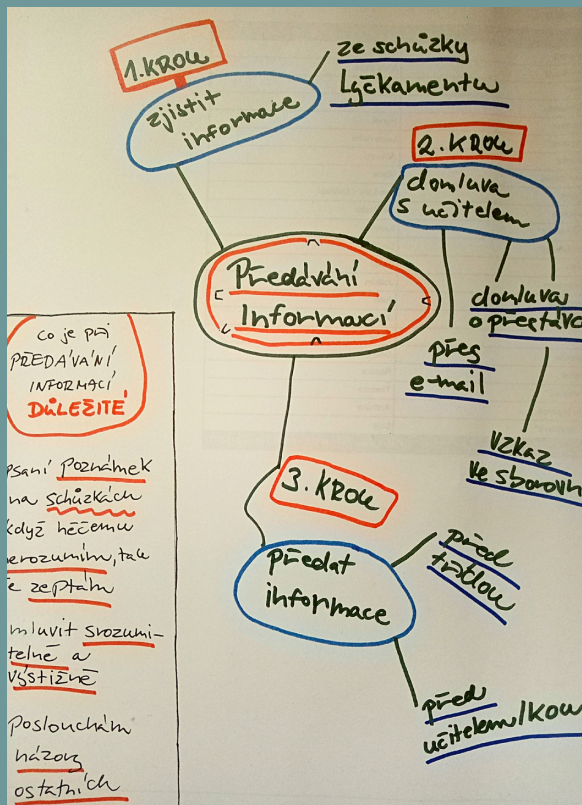 1. KROK
zjistit
informace
ze schůzky
Lyčkamentu
2. KROK
domluva
s učitelem
Předávání
Informací
domluva
o přestáv
přes
e-mail
vzkaz
ve sborovn
3. KROK
předat
informace
před
třídou
před
učitelem/kou
co je při
PŘEDÁVÁNÍ
INFORMACÍ
DŮLEŽITÉ
psaní Poznámek
na schůzkách
když něčemu
nerozumím, tak
se zeptám
mluvit srozumi-
telně a
výstižně
Poslouchám
názory
ostatních